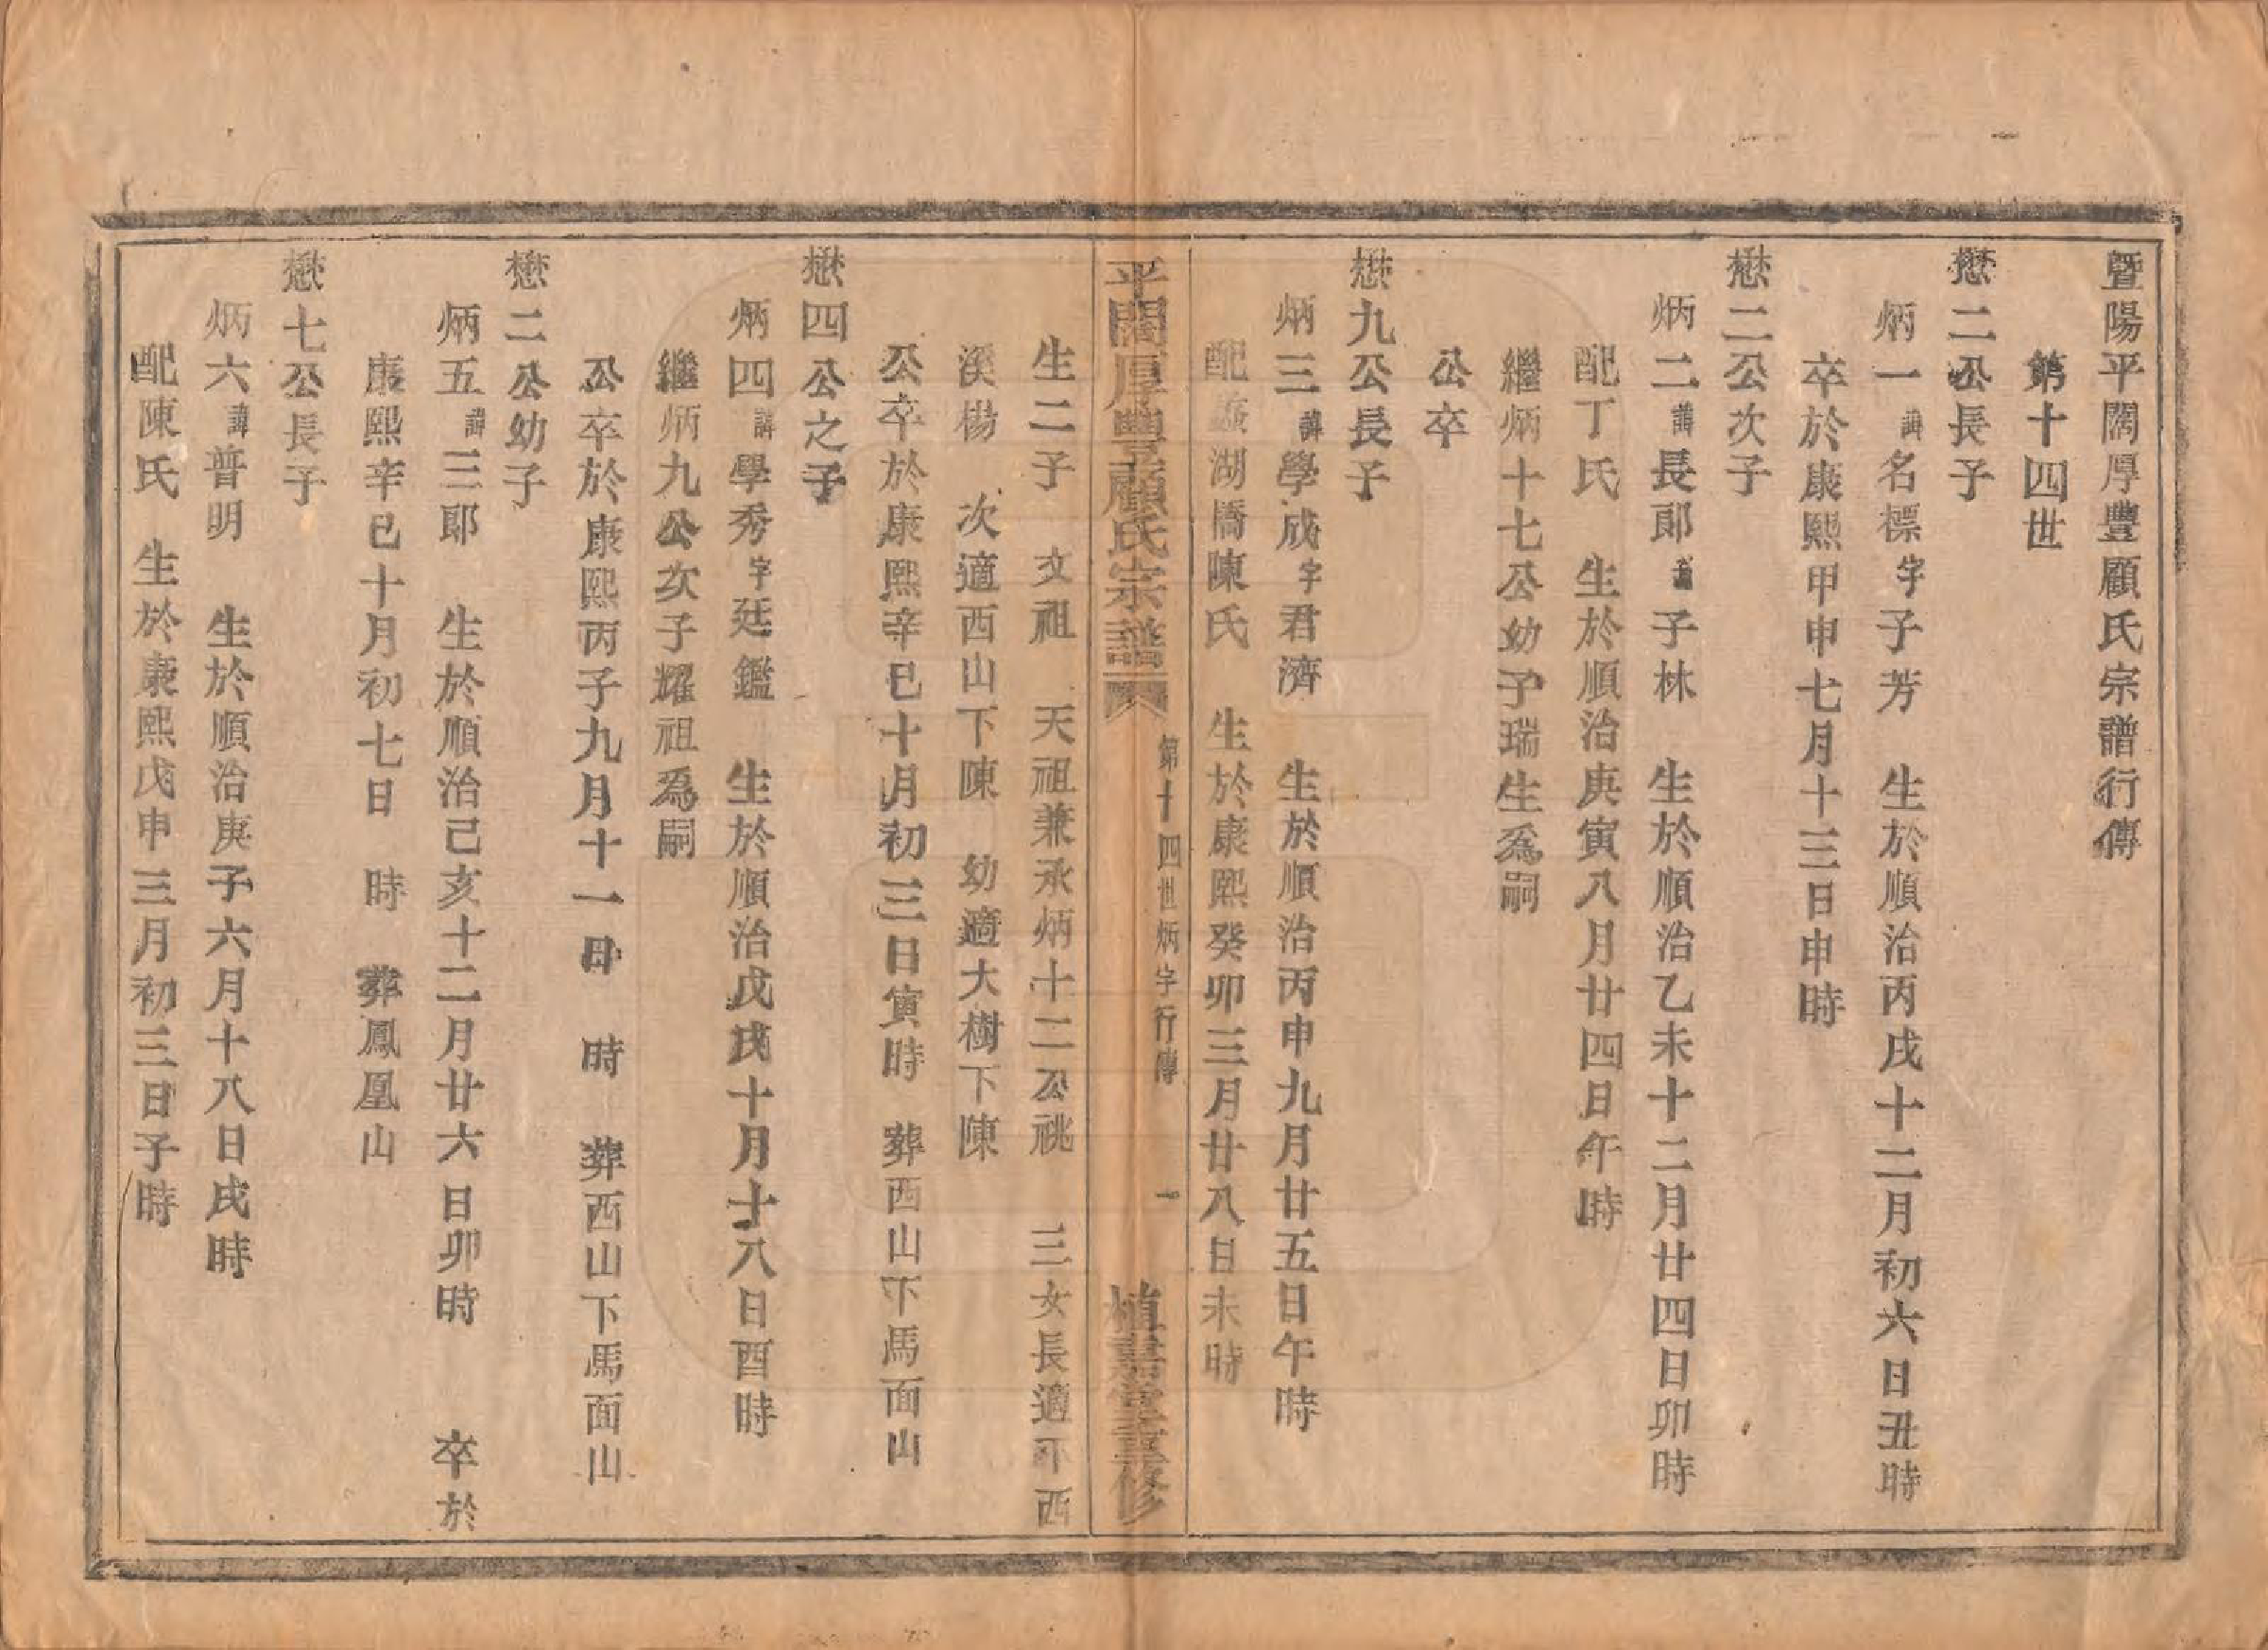 暨陽平闊厚豐顧氏宗譜行傳
第十四世
懋二公長子
炳一諱名標字子芳 生於順治丙戌十二月初六日丑時
卒於康熙甲申七月十三日申時
懋二公次子
炳二諱長郞子林 生於順治乙未十二月廿四日卯時
配丁氏 生於順治庚寅八月廿四日午時
繼炳十七公幼子瑞生爲嗣
公卒
懋九公長子
炳三諱學成字君濟 生於順治丙申九月廿五日午時
配湖橋陳氏 生於康熙癸卯三月廿八日未時
平闊厚豐顧氏宗譜 第十四世炳字行傳 一 植嘉堂重修
生二子 文祖 天祖兼承炳十二公祧 三女長適下西
溪楊 次適西山下陳 幼適大樹下陳
公卒於康熙辛巳十月初三日寅時 葬西山下馬面山
懋四公之子
炳四諱學秀字廷鑑 生於順治戊戌十月十八日酉時
繼炳九公次子耀祖爲嗣
公卒於康熙丙子九月十一日 時 葬西山下馬面山
懋二公幼子
炳五諱三郞 生於順治己亥十二月廿六日卯時 卒於
康熙辛巳十月初七日 時 葬鳳凰山
懋七公長子
炳六諱普明 生於順治庚子六月十八日戌時
配陳氏 生於康熙戊申三月初三日子時